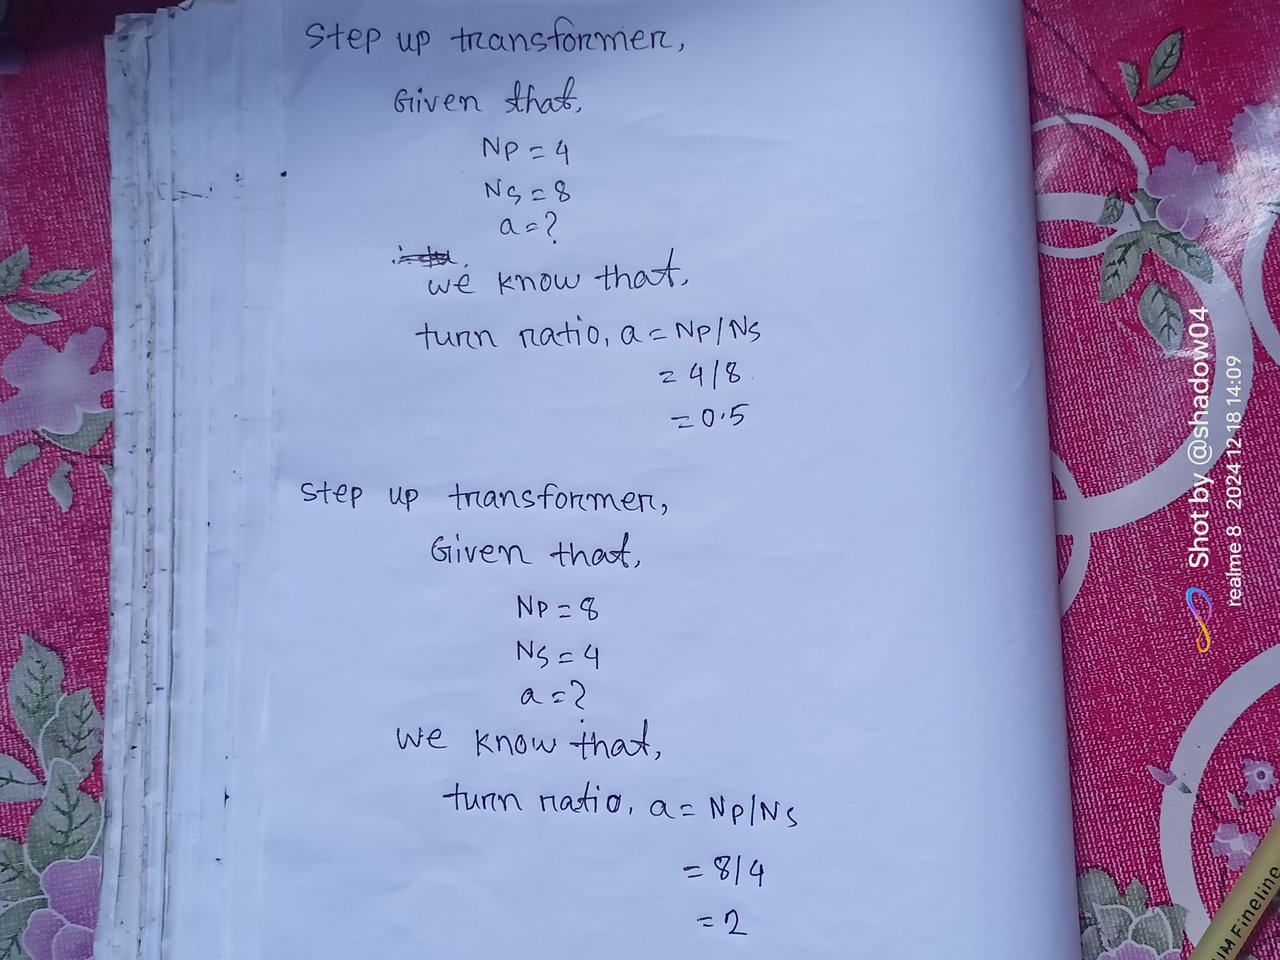 Step up transformer,
Given that,
Np = 4
Ns = 8
a = ?
we know that,
turn ratio, a = Np/Ns
= 4/8
= 0.5
Step up transformer,
Given that,
Np = 8
Ns = 4
a = ?
we know that,
turn ratio, a = Np/Ns
= 8/4
= 2
Shot by @shadow04
realme 8 2024 12 18 14:09
Fineline